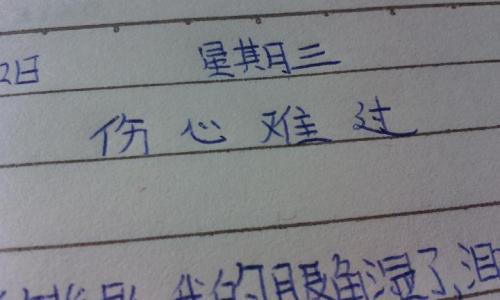 2日 星期三
伤心难过
我的眼角湿了,泪